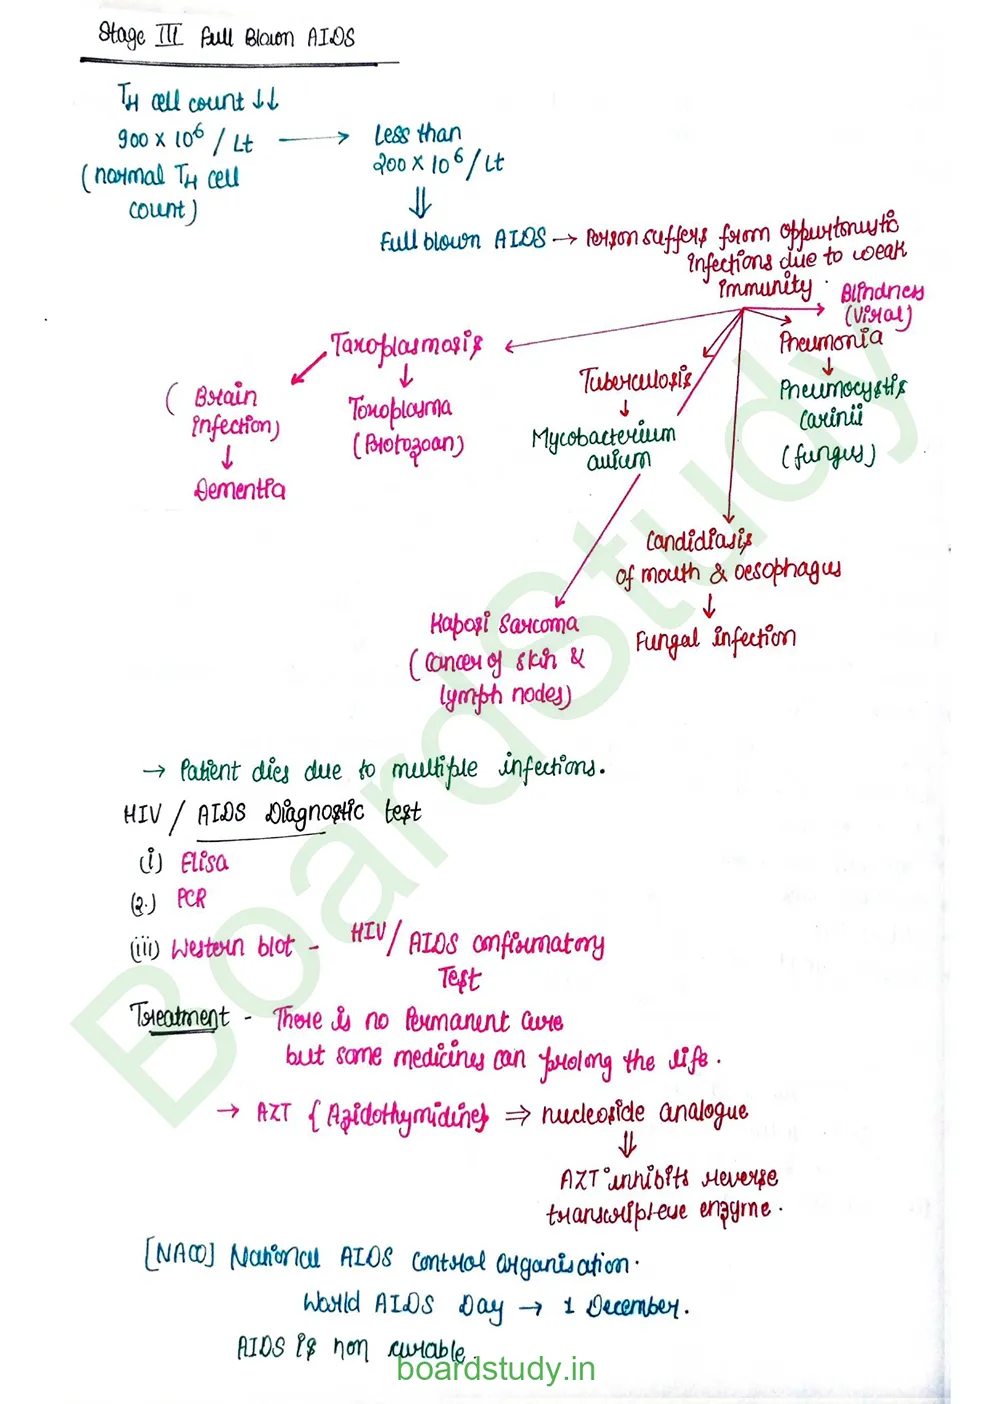 Stage III Full Blown AIDS
TH cell count ↓↓
900 x 10⁶ / Lt → Less than
200 x 10⁶ / Lt
(normal TH cell
count)
⇓
Full blown AIDS → Person suffers from oppurtonustic
infections due to weak
immunity.
Blindness
(Viral)
Pneumonia
↓
Pneumocystis
Carinii
(fungus)
Taxoplasmosis
(Brain
infection)
↓
Dementia
↓
Toxoplasma
(Protozoan)
Tuberculosis
↓
Mycobacterium
avium
Candidiasis
of mouth & oesophagus
↓
Fungal infection
Kaposi Sarcoma
(cancer of skin &
lymph nodes)
→ Patient dies due to multiple infections.
HIV / AIDS Diagnostic test
(i) Elisa
(2.) PCR
(iii) Western blot - HIV / AIDS confirmatory
Test
Treatment - There is no Permanent Cure
but some medicines can prolong the life.
→ AZT {Azidothymidine} ⇒ nucleoside analogue
⇓
AZT inhibits reverse
transcriptese enzyme.
[NACO] National AIDS Control Organisation.
World AIDS Day → 1 December.
AIDS is non curable.
boardstudy.in
BoardStudy